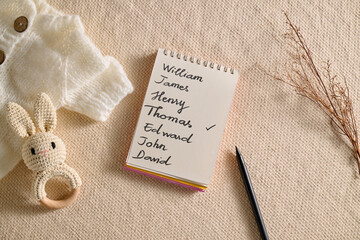 William
James
Henry
Thomas
Edward ✓
John
David